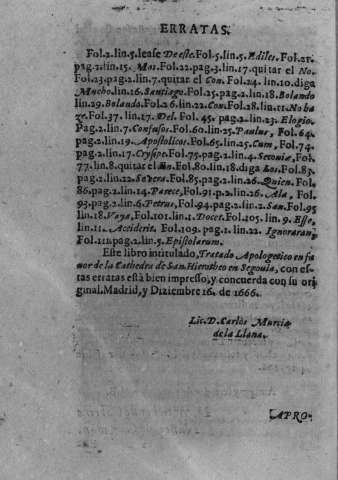 ERRATAS.
Fol.2.lin.5.lease De este.Fol.5.lin.5.Ediles.Fol.21.
pag.2.lin.15.Mas.Fol.22.pag.3.lin.17.quitar el No.
Fol.23.pag.2.lin.7.quitar el Con.Fol.24.lin.10.diga
Mucho.lin.16.Santiago.Fol.25.pag.2.lin.18.Bolando
lin.29.Bolando.Fol.26.lin.22.Con.Fol.28.lin.11.No ha
ze.Fol.37.lin.17.Del.Fol.45.pag.2.lin.23.Elogio.
Pag.2.lin.7.Confusos.Fol.60.lin.25.Paulus, Fol.64.
pag.2.lin.19.Apostolicos.Fol.65.lin.25.Cum, Fol.74.
pag.2.lin.17.Crysipe.Fol.75.pag.2.lin.4.Seconiæ, Fol.
77.lin.8.quitar el Un.Fol.80.lin.18.diga Los.Fol.83.
pag.2.lin.22.Severa.Fol.85.pag.2.lin.26.Quien.Fol.
86.pag.2.lin.14.Parece, Fol.91.p.2.lin.26.Ala, Fol.
93.pag.2.lin.6.Petrus, Fol.94.pag.2.lin.2.San.Fol.95
lin.18.Vaya, Fol.101.lin.1.Docet.Fol.105.lin.9.Esse,
lin.11.Acciderit.Fol.109.pag.2.lin.22.Ignoraran,
Fol.111.pag.2.lin.5.Epistolarum.
Este libro intitulado, Tratado Apologetico en fa
uor de la Cathedra de San Hierotheo en Segouia, con es-
tas erratas està bien impresso, y concuerda con su ori
ginal. Madrid, y Diziembre 16. de 1666.
Lic. D. Carlos Murcia
de la Llana.
APRO-